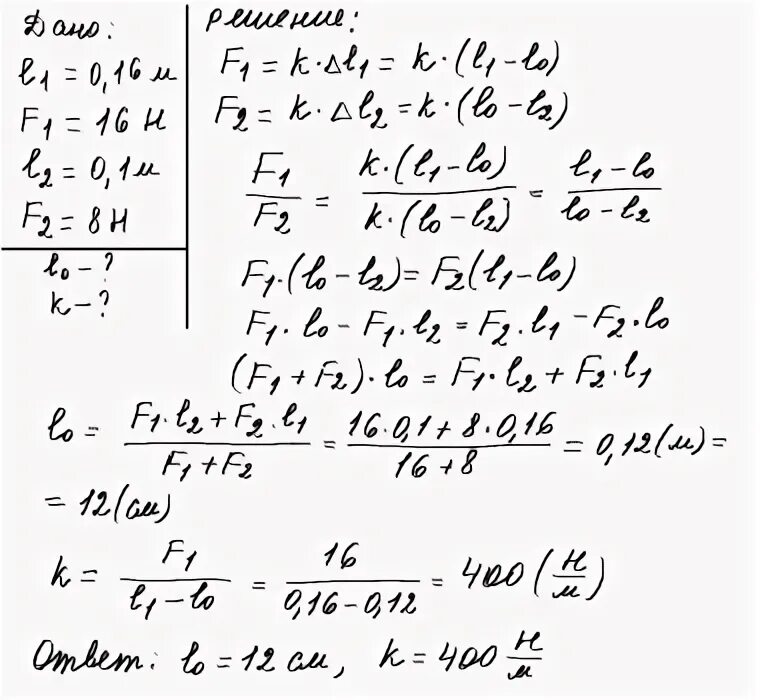 Дано:
l₁ = 0,16 м
F₁ = 16 Н
l₂ = 0,1 м
F₂ = 8 Н
l₀ – ?
k – ?
Решение:
F₁ = k · Δl₁ = k · (l₁ – l₀)
F₂ = k · Δl₂ = k · (l₀ – l₂)
F₁/F₂ = k · (l₁ – l₀)/k · (l₀ – l₂) = l₁ – l₀/l₀ – l₂
F₁ · (l₀ – l₂) = F₂ (l₁ – l₀)
F₁ · l₀ – F₁ · l₂ = F₂ · l₁ – F₂ · l₀
(F₁ + F₂) · l₀ = F₁ · l₂ + F₂ · l₁
l₀ = F₁ · l₂ + F₂ · l₁/F₁ + F₂ = 16 · 0,1 + 8 · 0,16/16 + 8 = 0,12 (м) =
= 12 (см)
k = F₁/l₁ – l₀ = 16/0,16 – 0,12 = 400 (Н/м)
Ответ: l₀ = 12 см, k = 400 Н/м